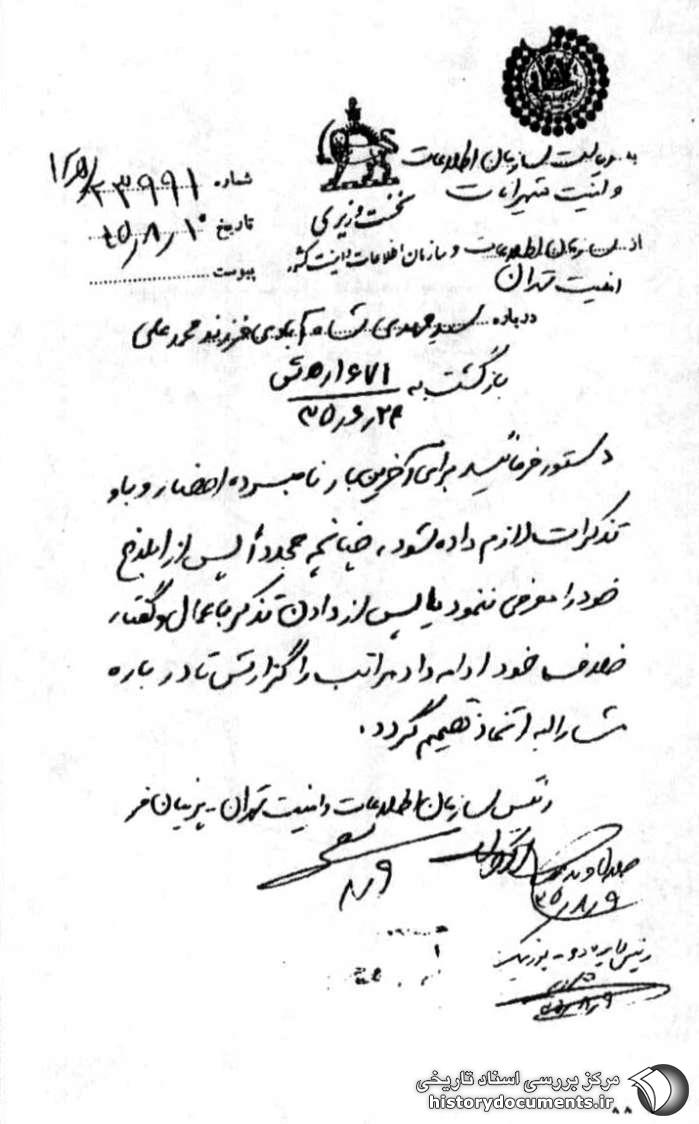 به ریاست سازمان اطلاعات
و امنیت شمیرانات
نخست وزیری
از سازمان اطلاعات و سازمان اطلاعات و امنیت کشور
امنیت تهران
شماره ۲۳۹۹۱
تاریخ ۴۵/۸/۱۰
پیوست
درباره سید مهدی شاه آبادی فرزند محمد علی
بازگشت به
۳۵/۶/۲۴
دستور فرمائید برای آخرین بار نامبرده احضار و باو
تذکرات لازم داده شود، چنانچه مجدداً پس از ابلاغ
خود را معرفی ننمود یا پس از دادن تذکر باعمال و گفتار
خلاف خود ادامه داد مراتب را گزارش تا در باره
مشارالیه اتخاذ تصمیم گردد.
رئیس سازمان اطلاعات و امنیت تهران - پرنیان فر
۸/۹
۳۵/۸/۹
مرکز بررسی اسناد تاریخی
historydocuments.ir